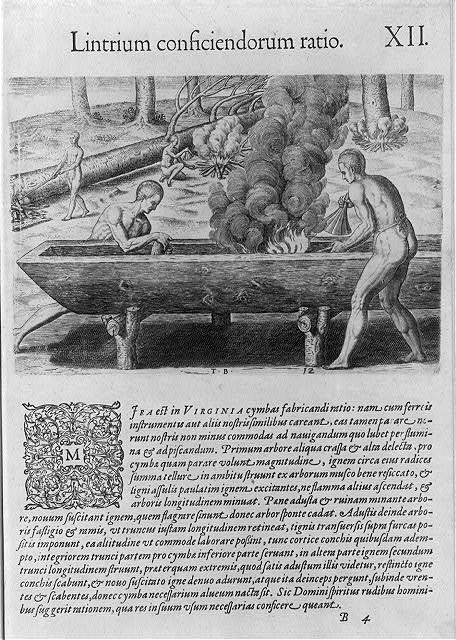 Lintrium conficiendorum ratio. XII.
T B 12
MIRA est in VIRGINIA cymbas fabricandi ratio: nam cum ferreis
instrumentis aut aliis nostris similibus careant, eas tamen parare norunt
nostris non minus commodas ad navigandum quo lubet per flumina
& ad piscandum. Primum arbore aliqua crassa & alta delecta, pro
cymbæ quam parare volunt magnitudine, ignem circa eius radices
summa tellure in ambitu struunt ex arborum musco bene resiccato, &
ligni assulis paulatim ignem excitantes, ne flamma altius ascendat, &
arboris longitudinem minuat. Pæne adusta & ruinam minante arbore,
novum suscitant ignem, quem flagrare sinunt donec arbor sponte cadat. Adustis deinde arboris
fastigio & ramis, ut truncus iustam longitudinem retineat, tignis transversis supra furcas positis
imponunt, ea altitudine ut commode laborare possint, tunc cortice conchis quibusdam adempto,
integriorem trunci partem pro cymbæ inferiore parte servant, in altera parte ignem secundum
trunci longitudinem struunt, præterquam extremis, quod satis adustum illis videtur, restincto igne
conchis scabunt, & novo suscitato igne denuo adurunt, atque ita deinceps pergunt, subinde urentes
& scabentes, donec cymba necessarium alveum nacta sit. Sic Domini spiritus rudibus hominibus
suggerit rationem, qua res in suum usum necessarias conficere queant.
B 4